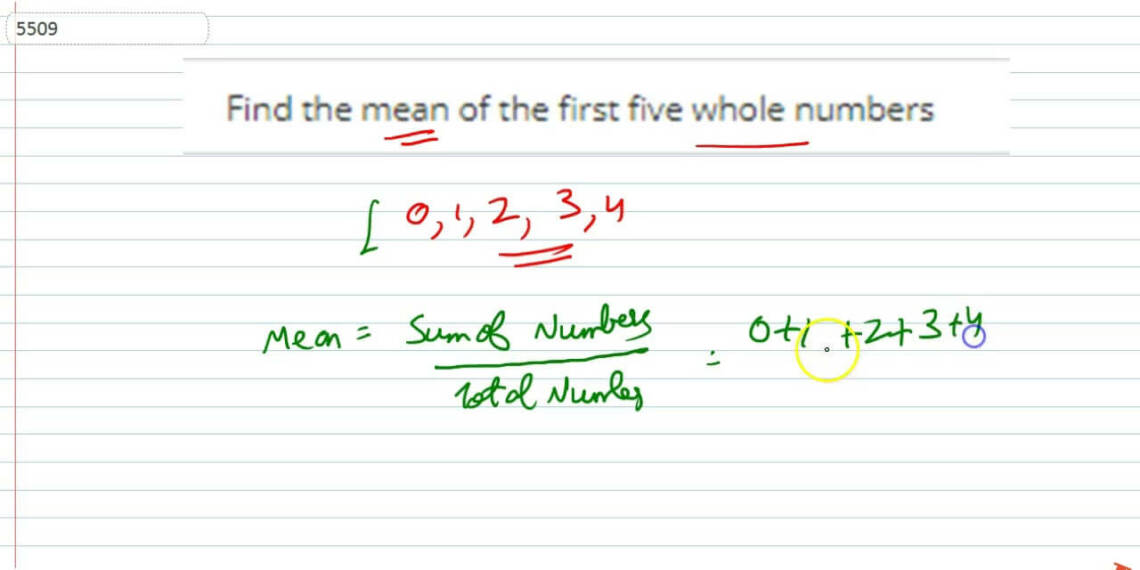 5509
Find the mean of the first five whole numbers
[ 0, 1, 2, 3, 4
Mean = Sum of Numbers = 0+1+2+3+4
Total Number